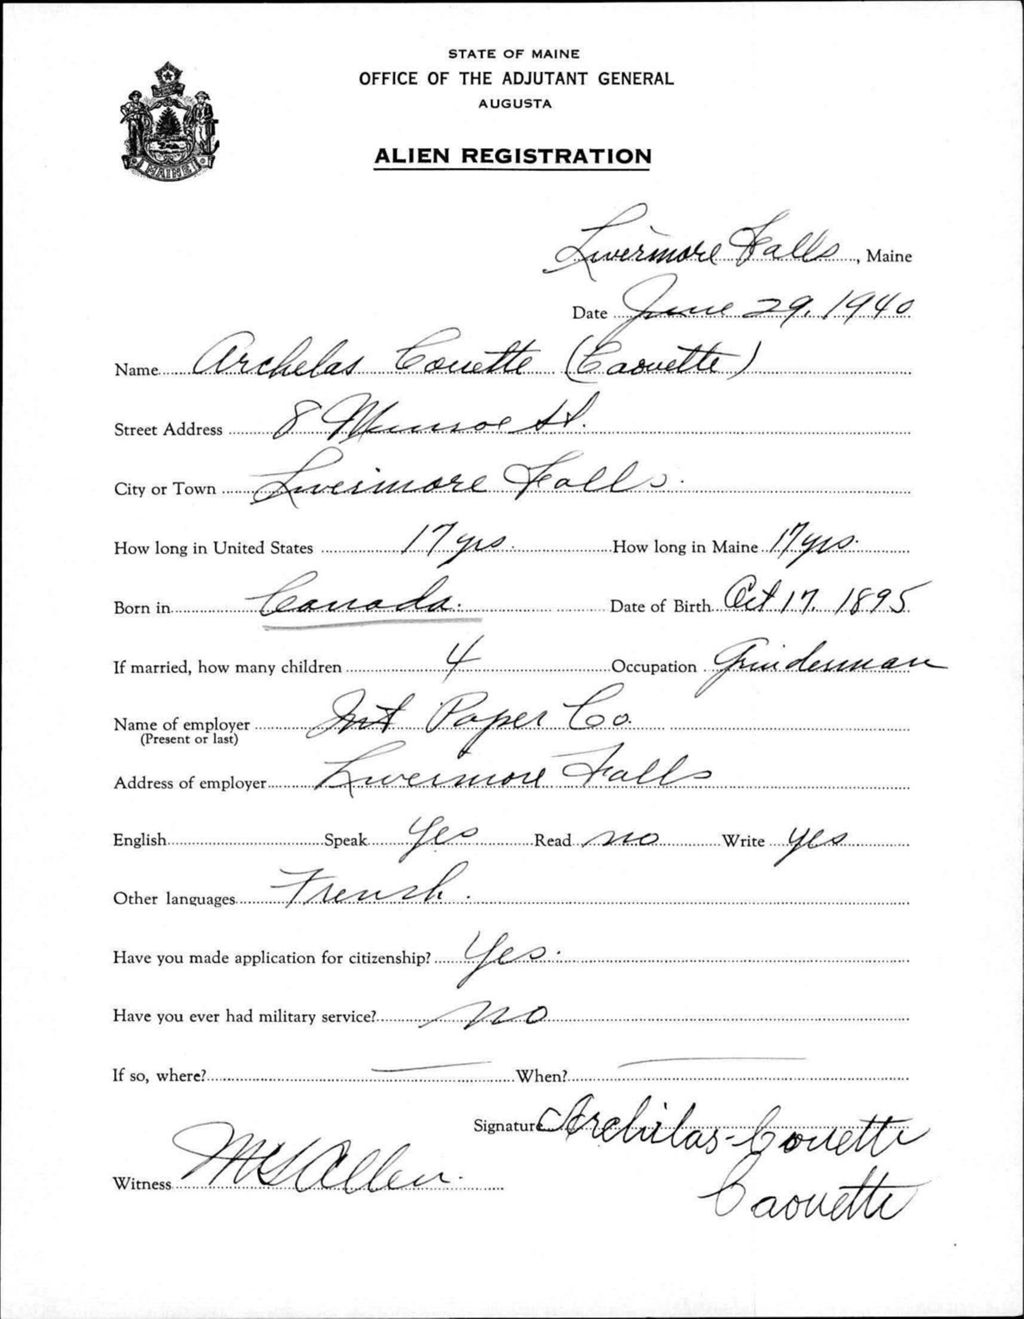 STATE OF MAINE
OFFICE OF THE ADJUTANT GENERAL
AUGUSTA
ALIEN REGISTRATION
MAINE
Livermore Falls, Maine
Date June 29, 1940
Name Archelas Couette (Caouette)
Street Address 8 Munroe St.
City or Town Livermore Falls.
How long in United States 17 yrs. How long in Maine 17 yrs.
Born in Canada. Date of Birth Oct 17. 1895
If married, how many children 4 Occupation Grinderman
Name of employer Int Paper Co.
(Present or last)
Address of employer Livermore Falls
English Speak Yes Read no Write yes
Other languages French.
Have you made application for citizenship? Yes.
Have you ever had military service? no
If so, where? — When? —
Signature Archilas Couette
Caouette
Witness Allen.